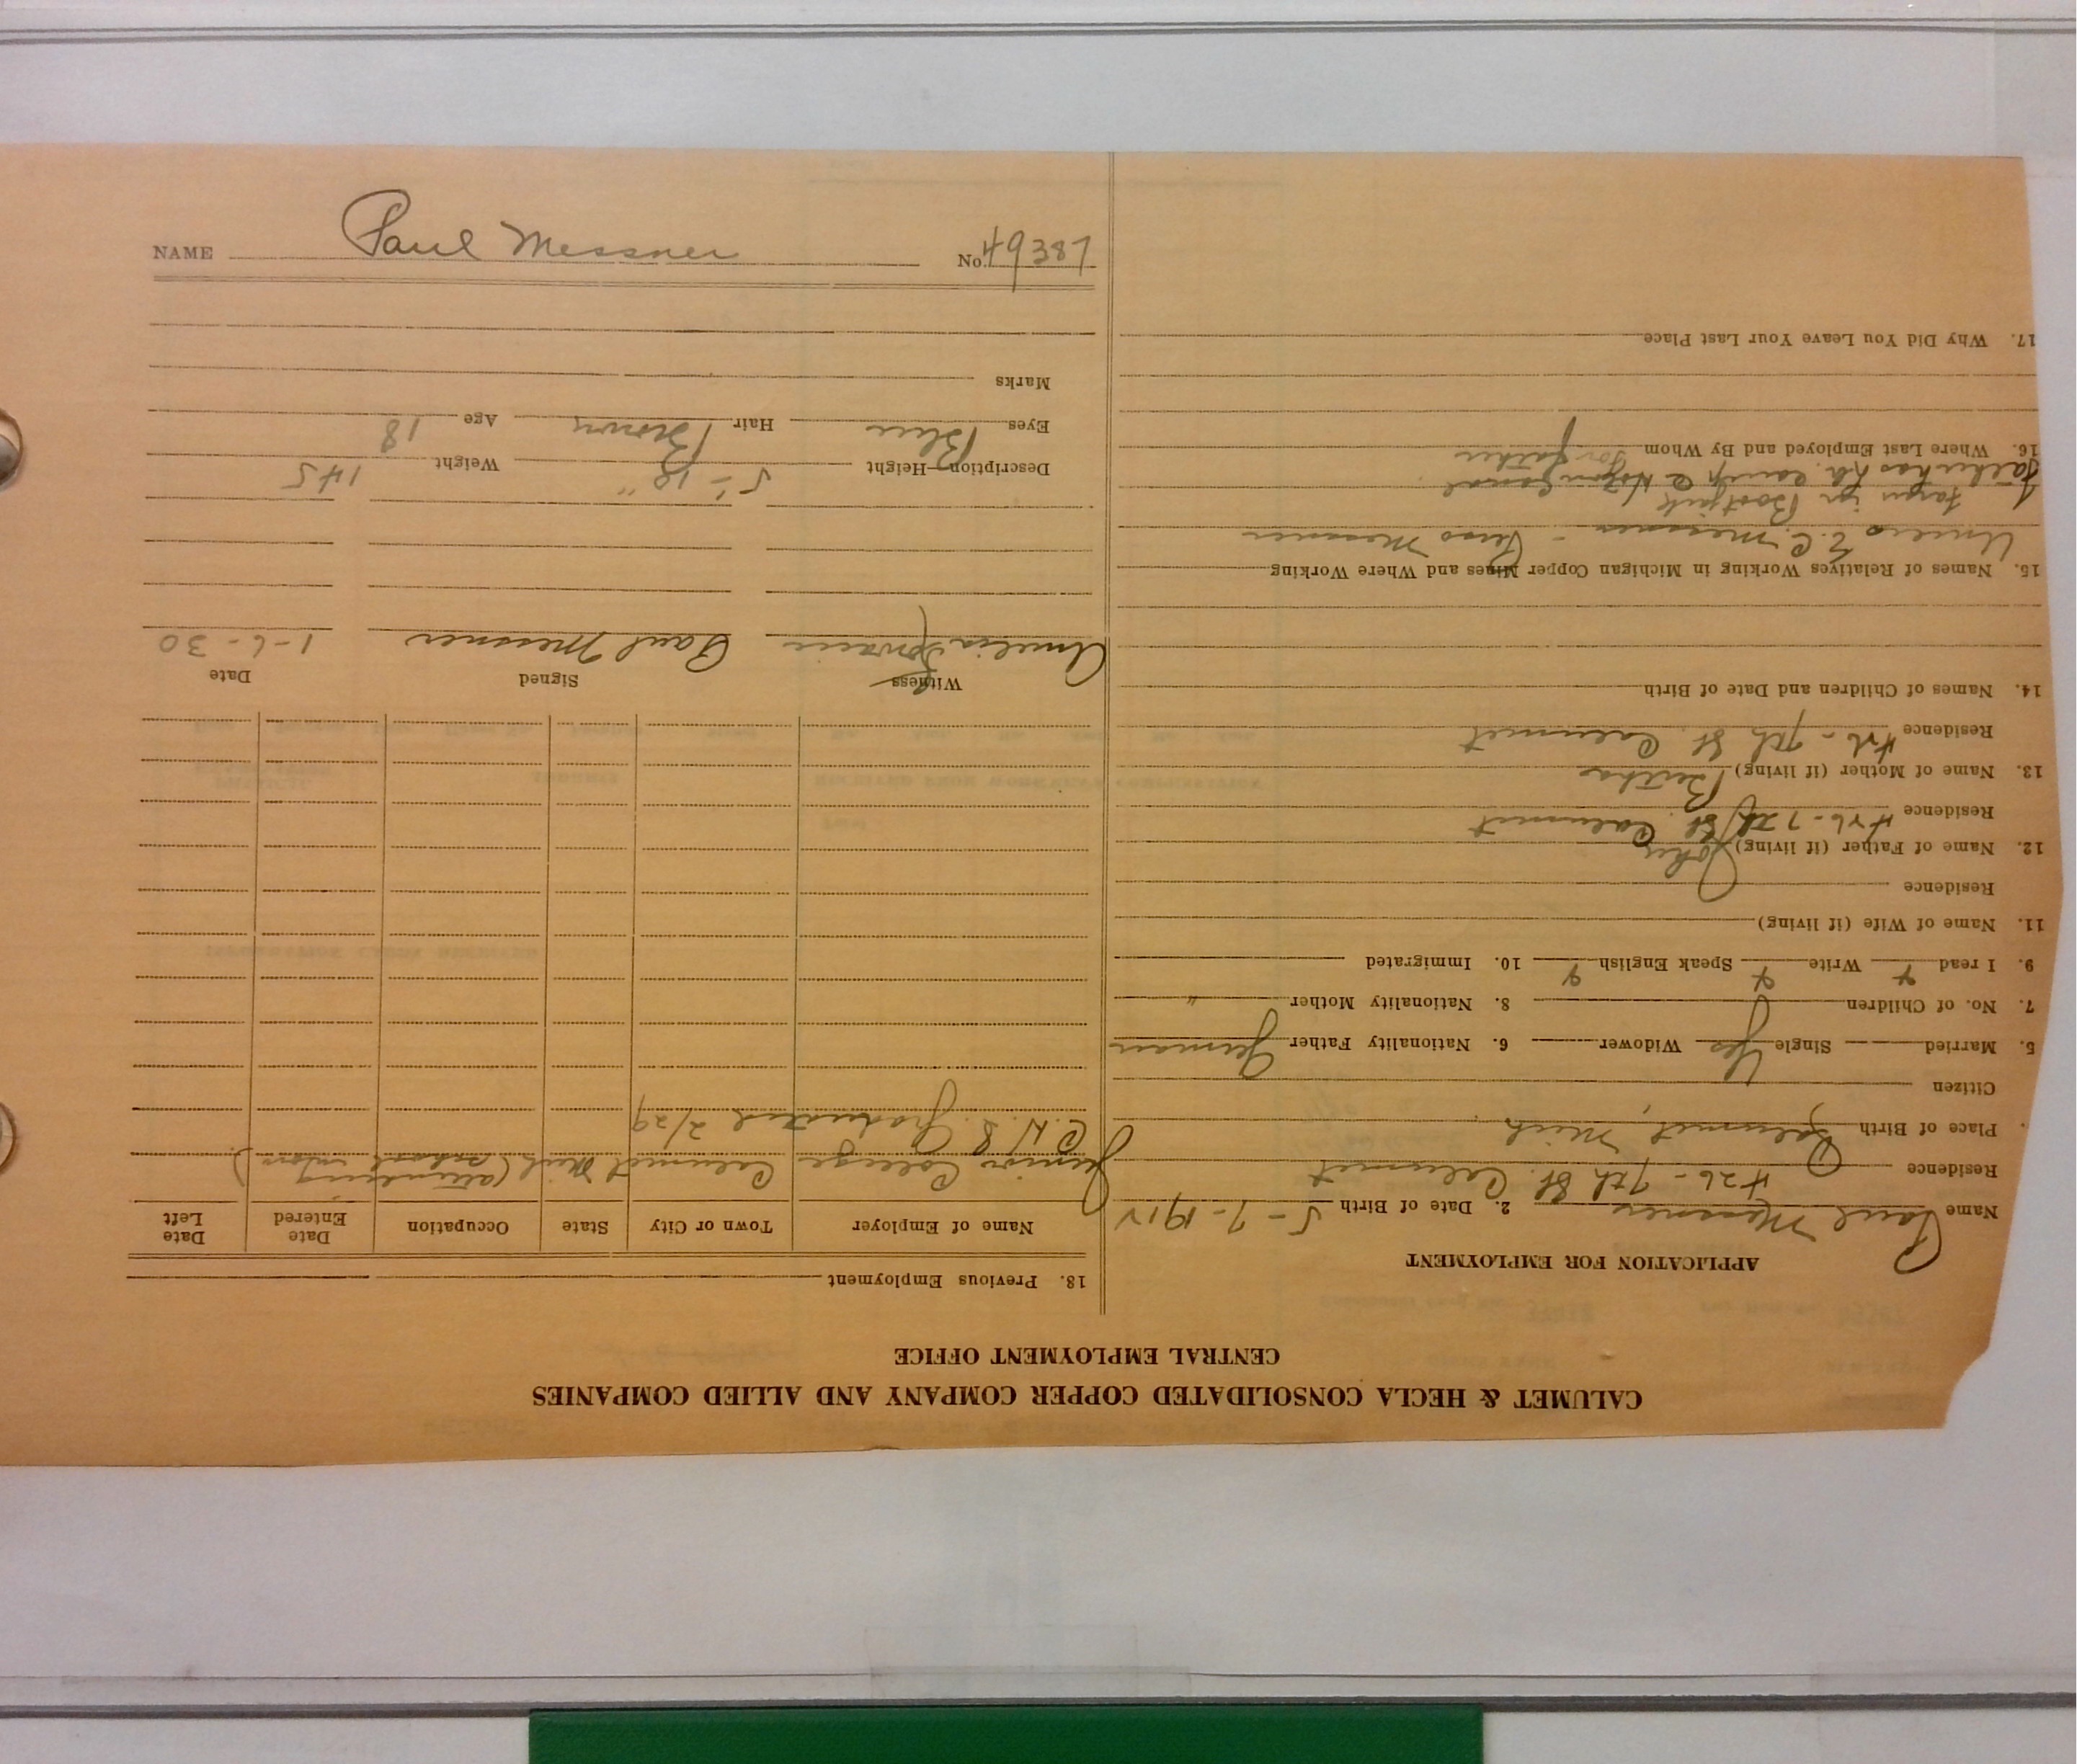 NAME Paul Messner No. 49387
CALUMET & HECLA CONSOLIDATED COPPER COMPANY AND ALLIED COMPANIES
CENTRAL EMPLOYMENT OFFICE
APPLICATION FOR EMPLOYMENT
Name Paul Messner 2. Date of Birth 5-7-1912
Residence 426-7th St. Calumet
Place of Birth Calumet, Mich.
Citizen
5. Married Single Yes Widower 6. Nationality Father German
7. No. of Children 8. Nationality Mother "
9. I read Write Speak English 10. Immigrated
11. Name of Wife (if living)
Residence
12. Name of Father (if living) John
Residence 426-7th St. Calumet
13. Name of Mother (if living) Bertha
Residence 426-7th St. Calumet
14. Names of Children and Date of Birth
15. Names of Relatives Working in Michigan Copper Mines and Where Working
E.C. Messner - Messner
farm in Bootjack
Father has camp @
16. Where Last Employed and By Whom for father
17. Why Did You Leave Your Last Place
18. Previous Employment
Name of Employer Town or City State Occupation Date Entered Date Left
Junior College Calumet Mich (attending school now)
C.H.S. Graduated 2/29
Witness Signed Date
Amelia Paul Messner 1-6-30
Description—Height 5'-10" Weight 145
Eyes Blue Hair Brown Age 18
Marks